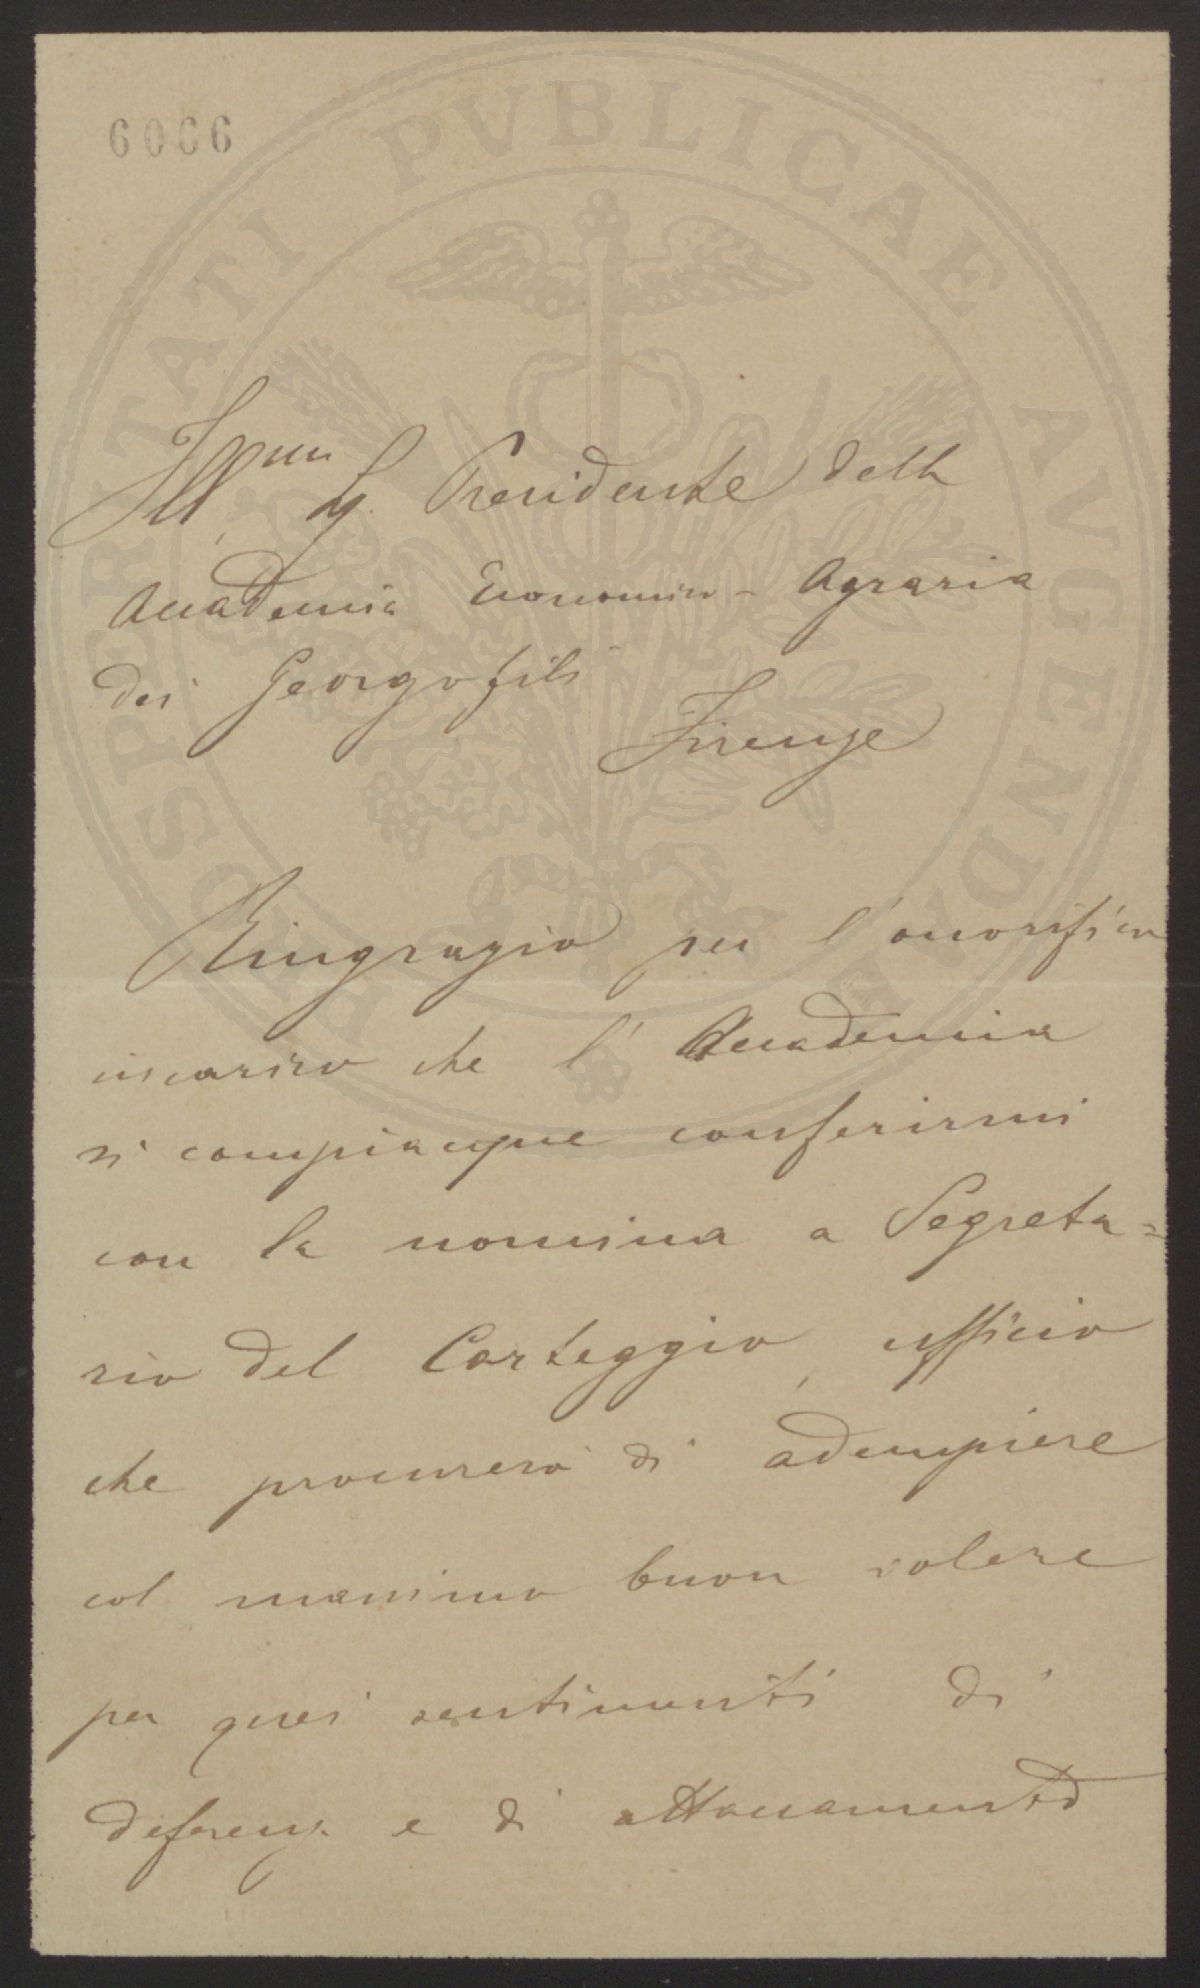 6066
PROSPERITATI PVBLICAE AVGENDAE
Illmo Sr. Presidente della
Accademia Economico-Agraria
dei Georgofili
Firenze
Ringrazio per l'onorifico
incarico che l'Accademia
si compiacque conferirmi
con la nomina a Segreta=
rio del Carteggio, ufficio
che procurerò di adempiere
col massimo buon volere
per quei sentimenti di
deferenza e di attaccamento